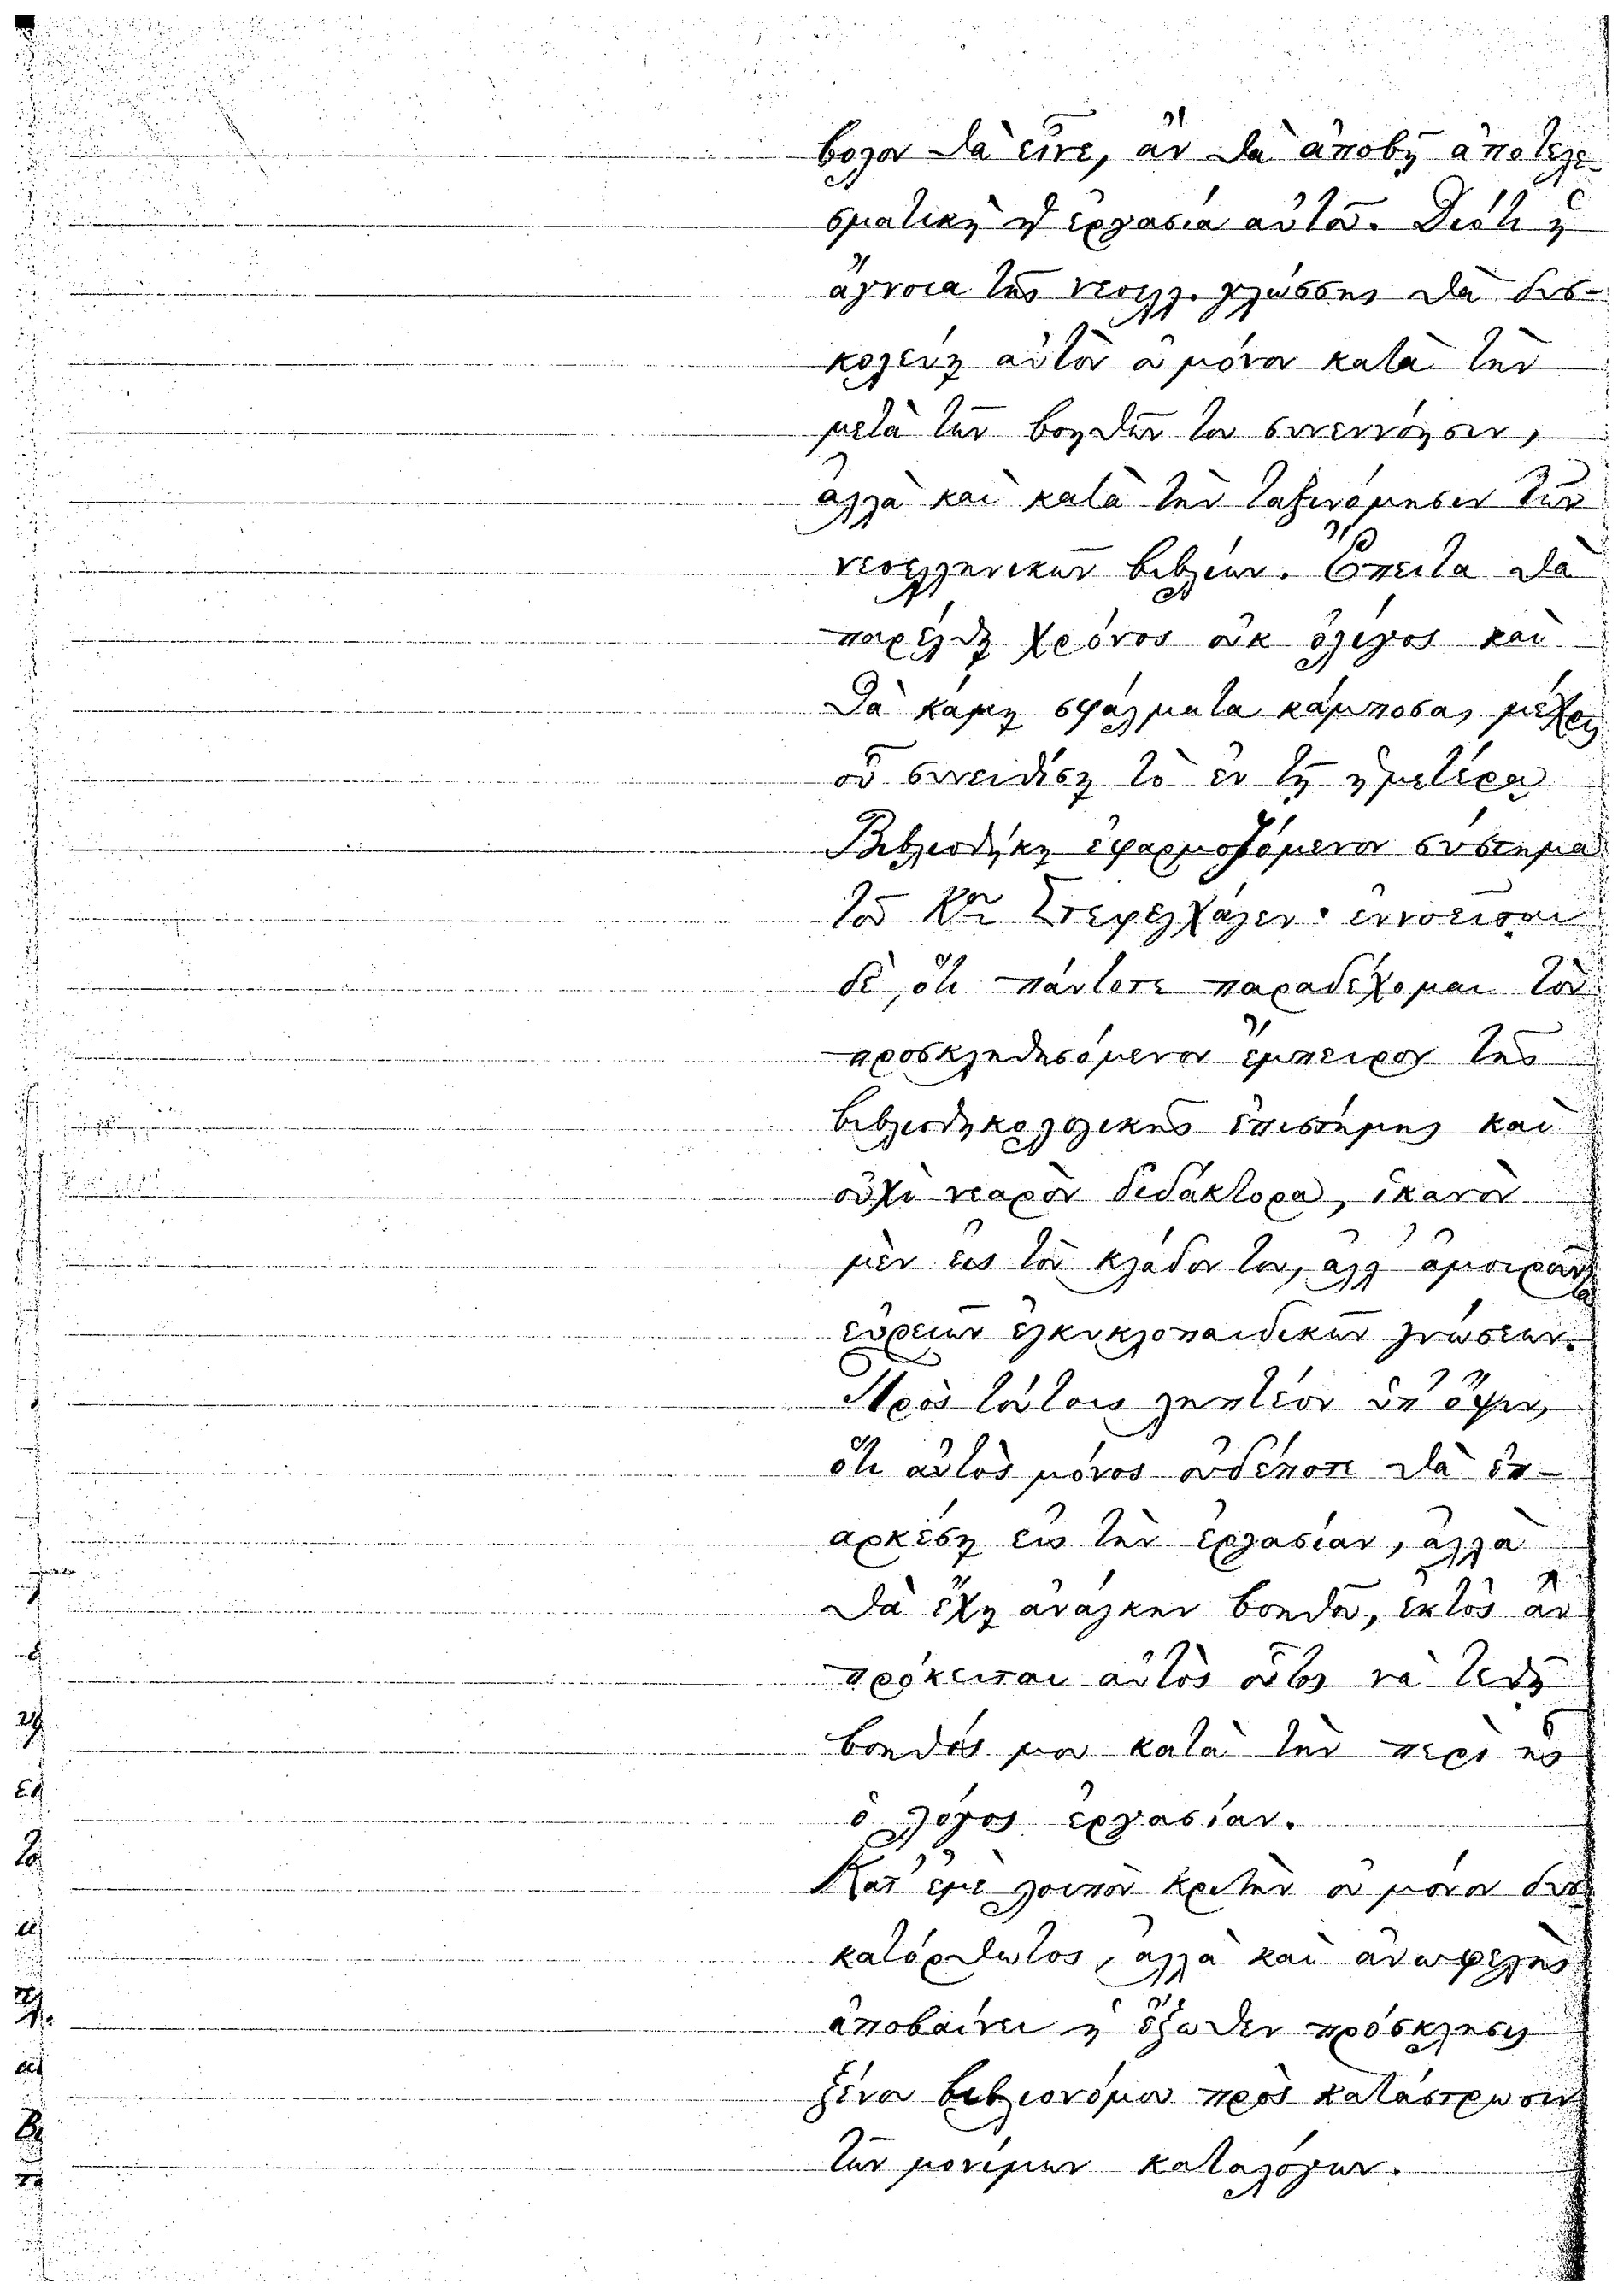 βολον θὰ εἶνε, ἂν θὰ ἀποβῇ ἀποτελε-
σματικὴ ἡ ἐργασία αὐτοῦ. Διότι ἡ
ἄγνοια τῆς νεοελλ. γλώσσης θὰ δυσ-
κολεύῃ αὐτὸν οὐ μόνον κατὰ τὴν
μετὰ τῶν βοηθῶν του συνεννόησιν,
ἀλλὰ καὶ κατὰ τὴν ταξινόμησιν τῶν
νεοελληνικῶν βιβλίων. Ἔπειτα θὰ
παρέλθῃ χρόνος οὐκ ὀλίγος καὶ
θὰ κάμῃ σφάλματα κάμποσα, μέχρις
οὗ συνειθίσῃ τὸ ἐν τῇ ἡμετέρᾳ
Βιβλιοθήκῃ ἐφαρμοζόμενον σύστημα
τοῦ Κου Στεφελχάγεν· ἐννοεῖται
δὲ, ὅτι πάντοτε παραδέχομαι τὸν
προσκληθησόμενον ἔμπειρον τῆς
βιβλιοθηκολογικῆς ἐπιστήμης καὶ
οὐχὶ νεαρὸν διδάκτορα, ἱκανὸν
μὲν εἰς τὸν κλάδον του, ἀλλ' ἀμοιροῦντα
εὐρειῶν ἐγκυκλοπαιδικῶν γνώσεων.
Πρὸς τούτοις ληπτέον ὑπ' ὄψιν,
ὅτι αὐτὸς μόνος οὐδέποτε θὰ ἐπ-
αρκέσῃ εἰς τὴν ἐργασίαν, ἀλλὰ
θὰ ἔχῃ ἀνάγκην βοηθοῦ, ἐκτὸς ἂν
πρόκειται αὐτὸς οὗτος νὰ τεθῇ
βοηθός μου κατὰ τὴν περὶ ἧς
ὁ λόγος ἐργασίαν.
Κατ' ἐμὲ λοιπὸν κριτὴν οὐ μόνον δυσ
κατόρθωτος, ἀλλὰ καὶ ἀνωφελὴς
ἀποβαίνει ἡ ἔξωθεν πρόσκλησις
ξένου βιβλιονόμου πρὸς κατάστρωσιν
τῶν μονίμων καταλόγων.